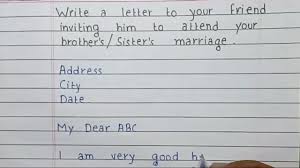 Write a letter to your friend
inviting him to attend your
brother's/Sister's marriage.
Address
City
Date
My Dear ABC
I am very good